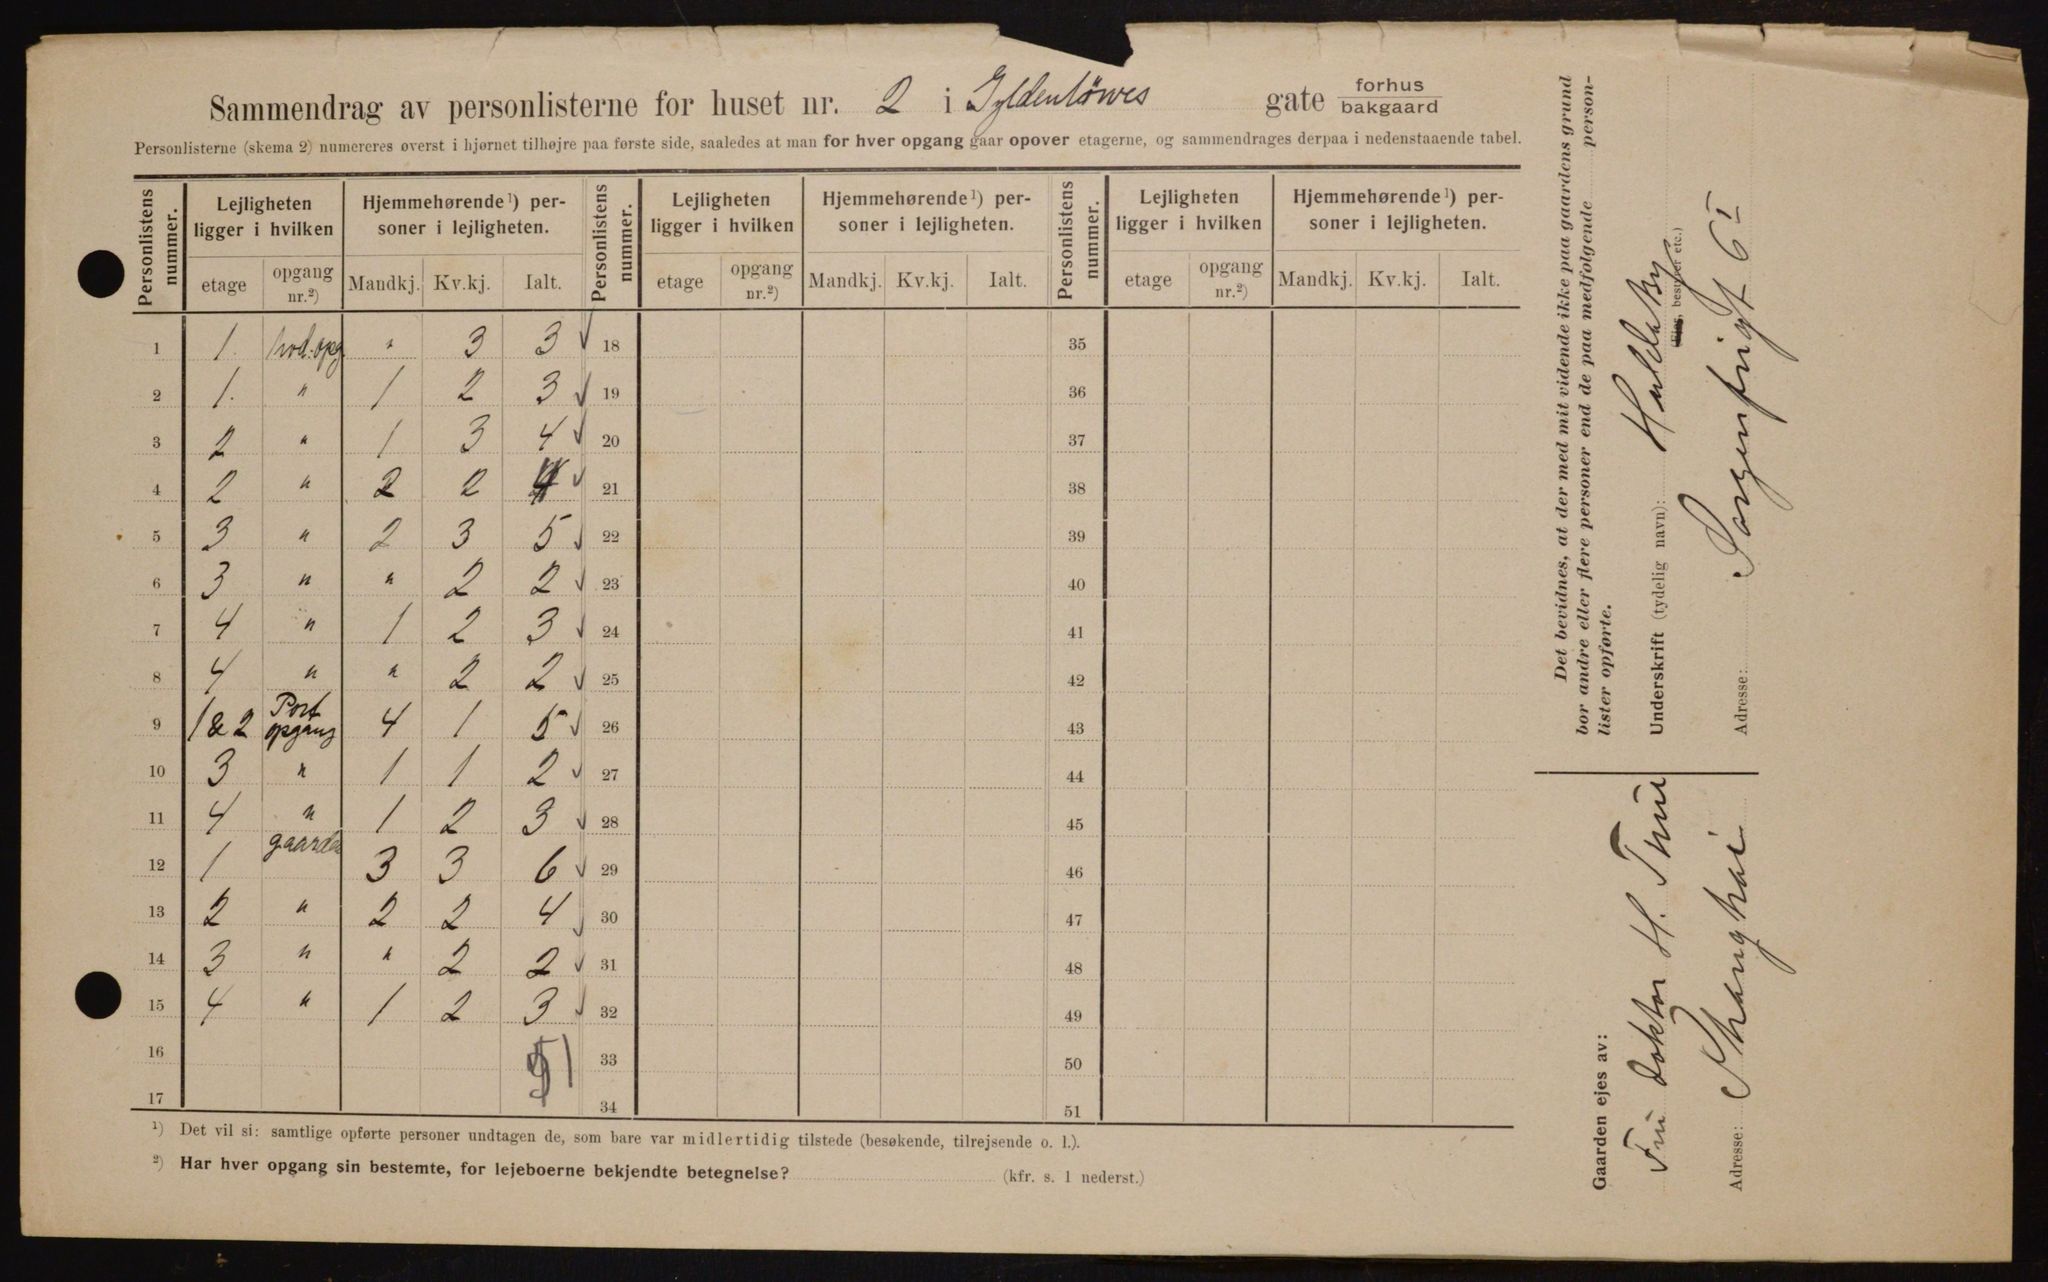 Sammendrag av personlisterne for huset nr. 2 i Gyldenløwes gate forhus bakgaard
Personlisterne (skema 2) numereres øverst i hjørnet tilhøjre paa første side, saaledes at man for hver opgang gaar opover etagerne, og sammendrages derpaa i nedenstaaende tabel.
Personlistens nummer. Lejligheten ligger i hvilken Hjemmehørende¹) personer i lejligheten. Personlistens nummer. Lejligheten ligger i hvilken Hjemmehørende¹) personer i lejligheten. Personlistens nummer. Lejligheten ligger i hvilken Hjemmehørende¹) personer i lejligheten.
etage opgang nr.²) Mandkj. Kv.kj. Ialt. etage opgang nr.²) Mandkj. Kv.kj. Ialt. etage opgang nr.²) Mandkj. Kv.kj. Ialt.
1 1. hod.opg " 3 3 18 35
2 1. " 1 2 3 19 36
3 2 " 1 3 4 20 37
4 2 " 2 2 4 21 38
5 3 " 2 3 5 22 39
6 3 " " 2 2 23 40
7 4 " 1 2 3 24 41
8 4 " " 2 2 25 42
9 1 & 2 Port opgang 4 1 5 26 43
10 3 " 1 1 2 27 44
11 4 " 1 2 3 28 45
12 1 gaarden 3 3 6 29 46
13 2 " 2 2 4 30 47
14 3 " " 2 2 31 48
15 4 " 1 2 3 32 49
16 51 33 50
17 34 51
¹) Det vil si: samtlige opførte personer undtagen de, som bare var midlertidig tilstede (besøkende, tilrejsende o. l.).
²) Har hver opgang sin bestemte, for lejeboerne bekjendte betegnelse? (kfr. s. 1 nederst.)
Det bevidnes, at der med mit vidende ikke paa gaardens grund
bor andre eller flere personer end de paa medfølgende person-
lister opførte.
Underskrift (tydelig navn):
(Eier, bestyrer etc.)
Adresse: Sorgenfrigt 6 I
Gaarden ejes av:
Fru doktor H. Thue
Adresse: Shanghai